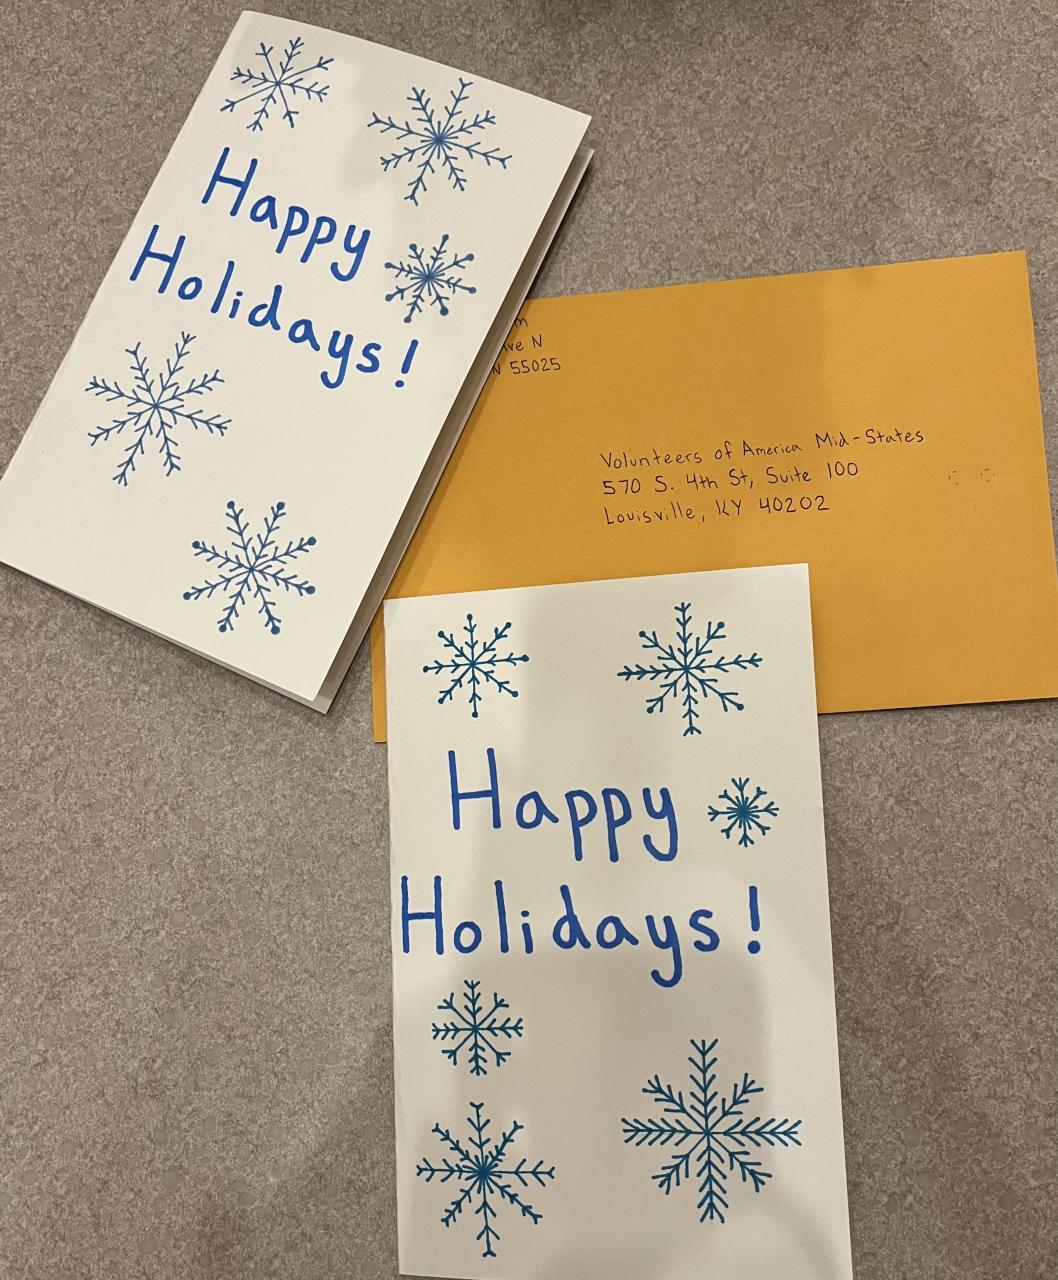 Happy
Holidays!
m
Ave N
N 55025
Volunteers of America Mid-States
570 S. 4th St, Suite 100
Louisville, KY 40202
Happy
Holidays!